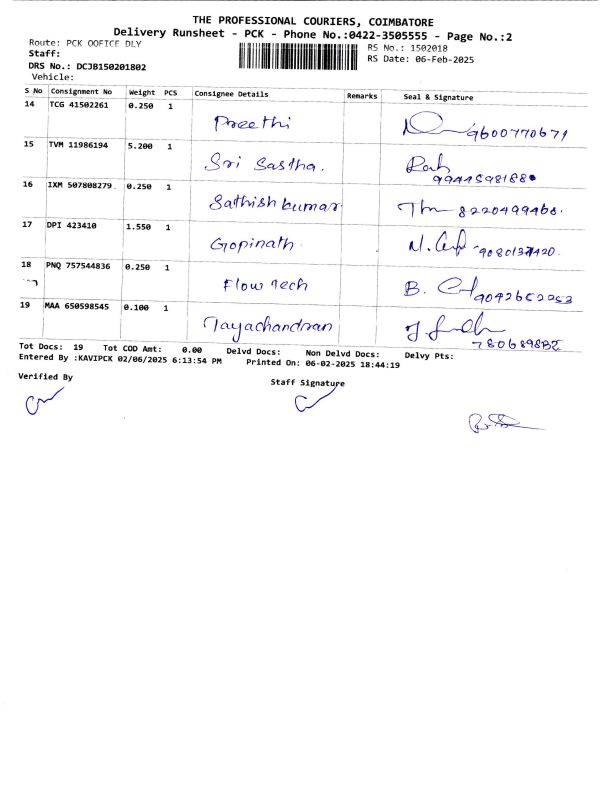 THE PROFESSIONAL COURIERS, COIMBATORE
Delivery Runsheet - PCK - Phone No.:0422-3505555 - Page No.:2
Route: PCK OOFICE DLY
RS No.: 1502018
Staff:
RS Date: 06-Feb-2025
DRS No.: DCJB150201802
Vehicle:
S No Consignment No Weight PCS Consignee Details Remarks Seal & Signature
14 TCG 41502261 0.250 1 Preethi 9600770671
15 TVM 11986194 5.200 1 Sri Sastha.
16 IXM 507808279. 0.250 1 Sathish kumar 8220499468.
17 DPI 423410 1.550 1 Gopinath
18 PNQ 757544836 0.250 1 Flow Tech B.
19 MAA 650598545 0.100 1 Jayachandran
Tot Docs: 19 Tot COD Amt: 0.00 Delvd Docs: Non Delvd Docs: Delvy Pts:
Entered By :KAVIPCK 02/06/2025 6:13:54 PM Printed On: 06-02-2025 18:44:19
Verified By
Staff Signature